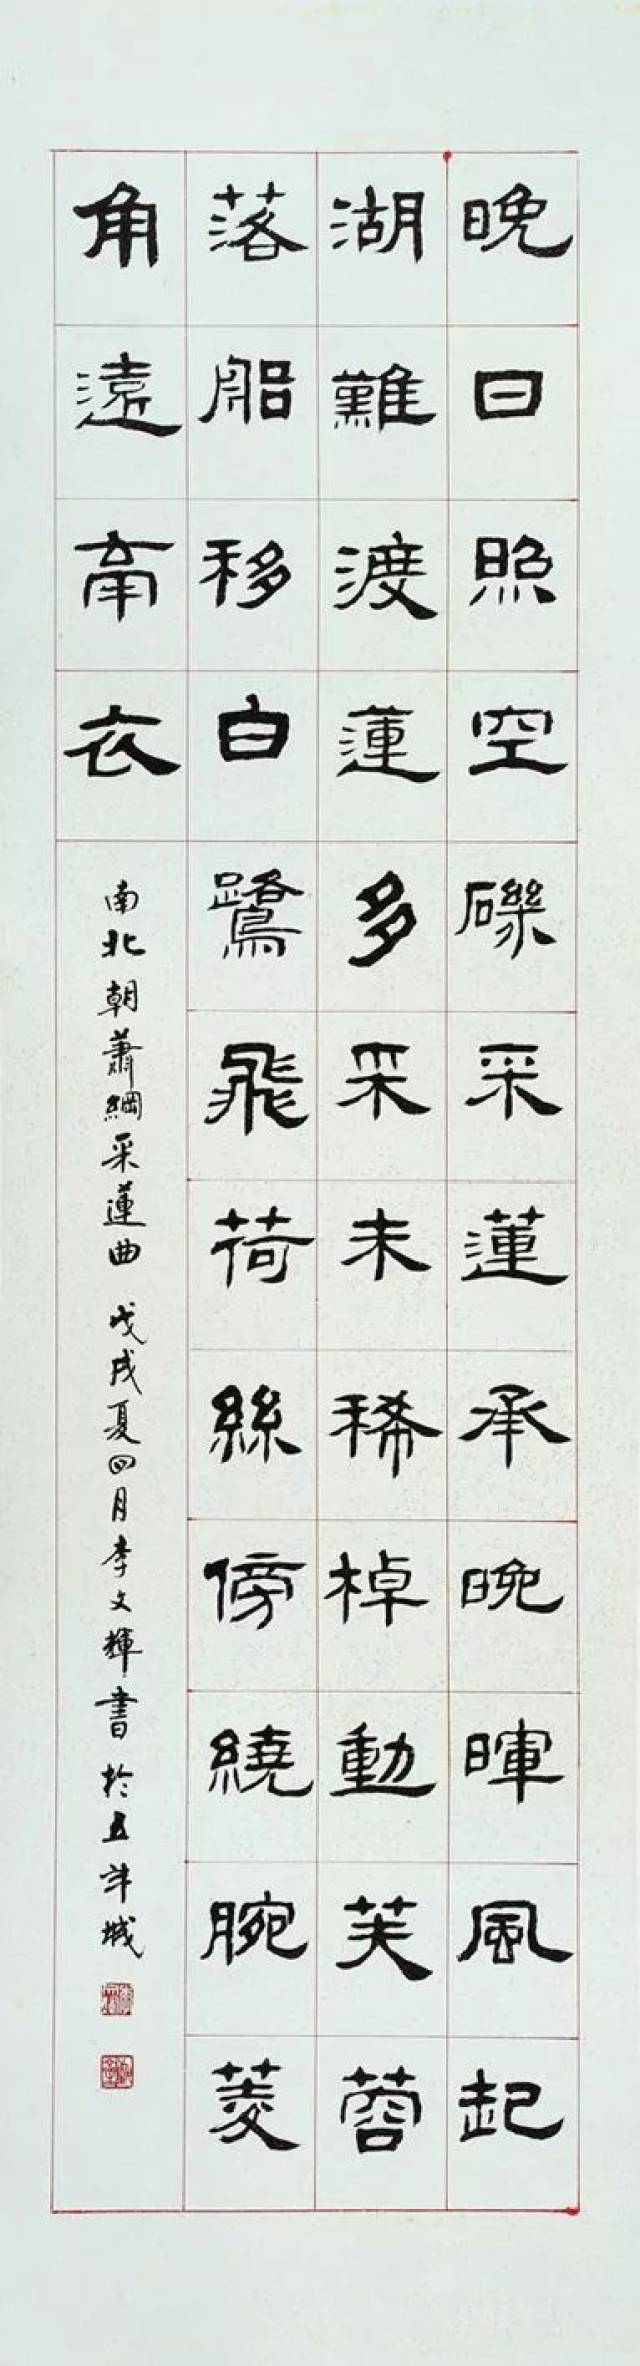 晚日照空磯采蓮承晚暉風起
湖難渡蓮多采未稀棹動芙蓉
落船移白鷺飛荷絲傍繞腕菱
角遠牽衣
南北朝蕭綱采蓮曲 戊戌夏四月李文輝書於五羊城